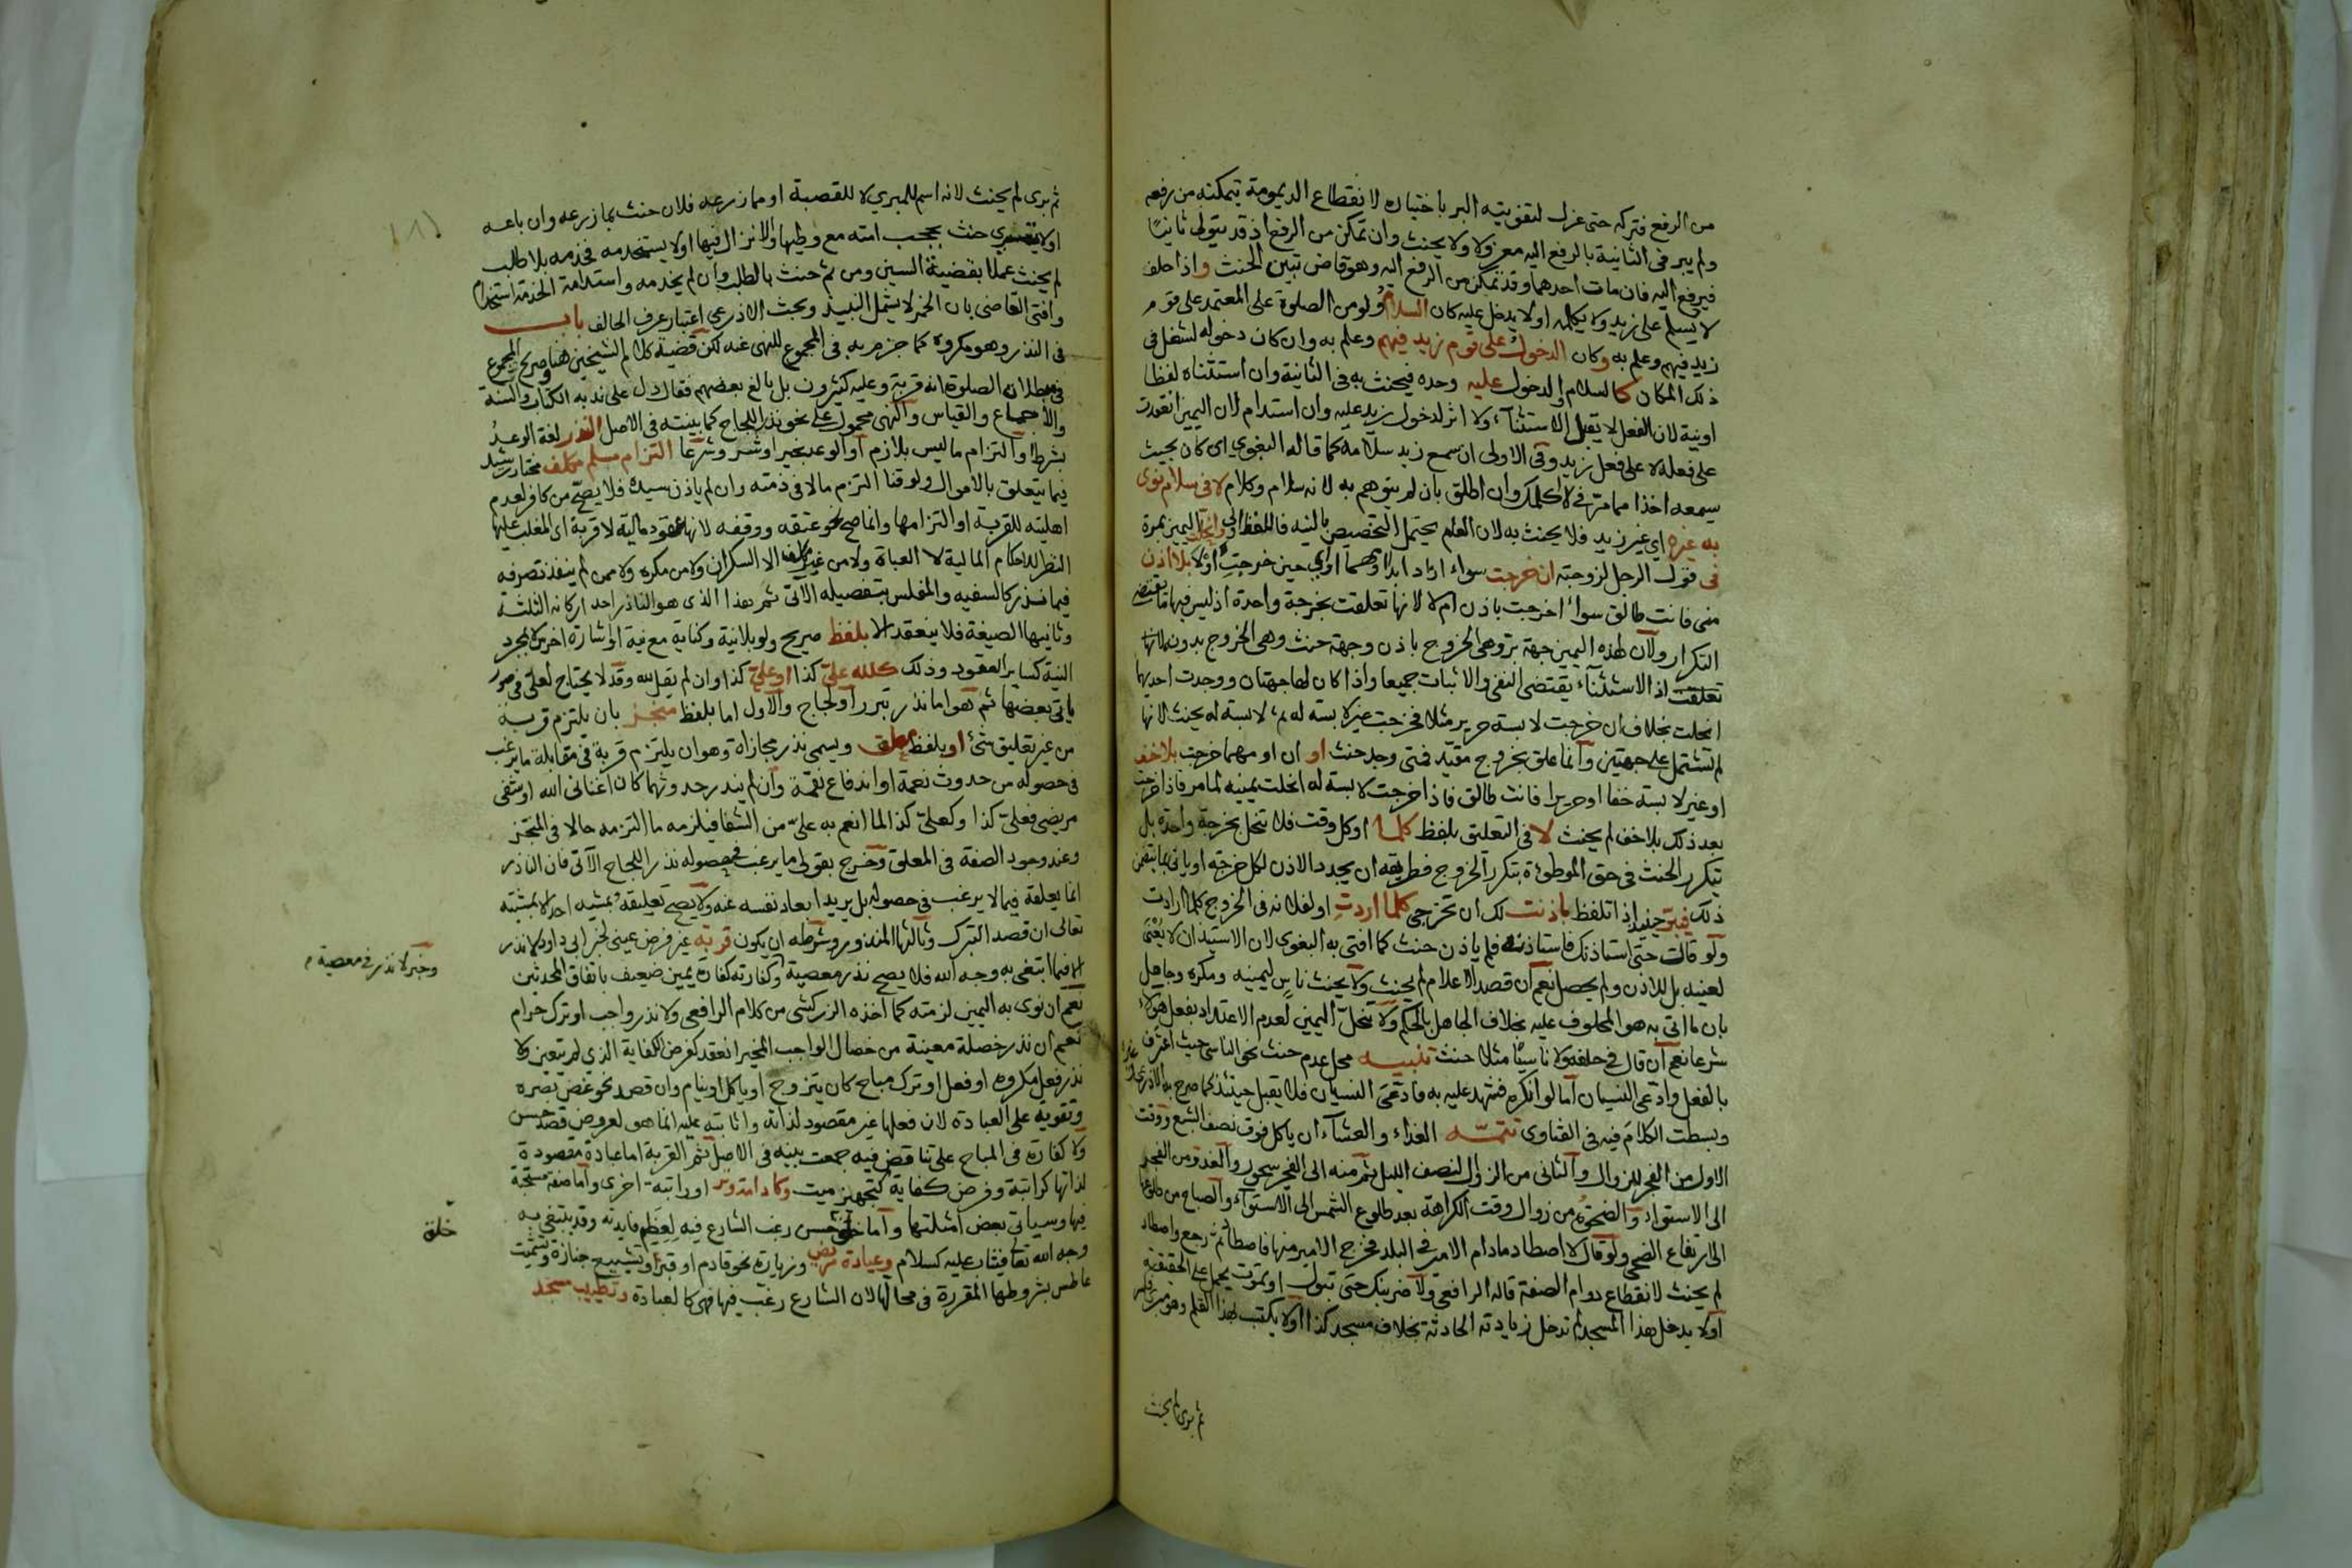 من الرفع فتركه حتى عزل لتفويته البر باختياره لانقطاع الديمومة تمكنه من رفعه
ولم يبر في الثانية بالرفع اليه معزولا ولا يحنث وان تمكن من الرفع اذ قد يتولى ثانيا
فيرفع اليه فان مات احدهما وقد تمكن من الرفع اليه وهو قاض تبين الحنث واذا حلف
لا يسلم على زيد ولا يكلمه او لا يدخل عليه كان السلام ولو من الصلوة على المعتمد على قوم
زيد فيهم وعلم به وكان الدخول على قوم زيد فيهم وعلم به وان كان دخوله لشغل في
ذلك المكان كالسلام والدخول عليه وحده فيحنث به في الثانية وان استثناه لفظا
او نية لان الفعل لا يقبل الاستثناء ولا اثر لدخول زيد عليه وان استدام لان اليمين انعقدت
على فعله لا على فعل زيد وفي الاولى ان سمع زيد سلامه كما قاله البغوي اي كان بحيث
يسمعه اخذا مما مر في لا اكلمك وان اطلق بان لم ينوهم به لانه سلام وكلام لا في سلام نوى
به غيره اي غير زيد فلا يحنث به لان العام يحتمل التخصيص بالنية فاللفظ اولى وانحلت اليمين بمرة
في قول الرجل لزوجته ان خرجت سواء اراد ابدا وهما او اي حين خرجت اولا بلا اذن
مني فانت طالق سواء اخرجت باذن ام لا لانها تعلقت بخرجة واحدة اذ ليس فيها ما يقتضي
التكرار ولان لهذه اليمين جهة بر وهي الخروج باذن وجهة حنث وهي الخروج بدونه لانها
تعلقت اذ الاستثناء يقتضي النفي والاثبات جميعا واذا كان لها جهتان ووجدت احديها
انحلت بخلاف ان خرجت لابسة حرير مثلا فخرجت غير لابسة له ثم لابسة له يحنث لانها
لم تشتمل على جهتين وانما علق بخروج مقيد فمتى وجد حنث او ان او مهما خرجت بلا خف
او غير لابسة خفا او حريرا فانت طالق فاذا خرجت لابسة له انحلت يمينه لما مر فاذا خرجت
بعد ذلك بلا خف لم يحنث لا في التعليق بلفظ كلما او كل وقت فلا تنحل بخرجة واحدة بل
يتكرر الحنث في حق الموطوءة بتكرر الخروج فطريقه ان يجدد الاذن لكل خرجة او ياتي بما يتضمن
ذلك فيبر حينئذ اذا تلفظ باذنت لك ان تخرجي كلما اردت او لفلانة في الخروج كلما ارادت
ولو قالت حتى استاذنك فاستاذنته فلم ياذن حنث كما افتى به البغوي لان الاستيذان لا يعنى
لعينه بل للاذن ولم يحصل نعم ان قصد الاعلام لم يحنث ولا يحنث ناس ليمينه ومكره وجاهل
بان ما اتى به هو المحلوف عليه بخلاف الجاهل بالحكم ولا تنحل اليمين لعدم الاعتداد بفعل هؤلاء
شرعا نعم ان قال في حلفه ولا ناسيا مثلا حنث تنبيه محل عدم حنث نحو الناسي حيث اعترف
بالفعل وادعى النسيان اما لو انكره فشهد عليه به فادعى النسيان فلا يقبل حينئذ كما صرح به الاذرعي
وبسطت الكلام فيه في الفتاوى تتمة الغداء والعشاء ان ياكل فوق نصف الشبع ووقت
الاول من الفجر للزوال والثاني من الزوال لنصف الليل ثم منه الى الفجر سحور والغدوة من الفجر
الى الاستواء والضحوة من زوال وقت الكراهة بعد طلوع الشمس الى الاستواء والصباح من طلوعها
الى ارتفاع الضحى ولو قال لا اصطاد ما دام الامير في البلد فخرج الامير منها فاصطاد ثم رجع واصطاد
لم يحنث لانقطاع دوام الصفة قاله الرافعي ولاضربنك حتى تبول او تموت يحمل على الحقيقة
او لا يدخل هذا المسجد لم تدخل زيادته الحادثة بخلاف مسجد كذا او لا يكتب بهذا القلم وهو مبري فكسر
ثم برى لم يحنث
ثم برى لم يحنث لانه اسم للمبري لا للقصبة او مما زرعه فلان حنث بما زرعه وان باعه
او لا يتسرى حنث بحجب امته مع وطيها والانزال فيها او لا يستخدمه فخدمه بلا طلب
لم يحنث عملا بقضية السين ومن ثم حنث بالطلب وان لم يخدمه واستدامة الخدمة استخدام
وافتى القاضي بان الخمر لا يشمل النبيذ وبحث الاذرعي اعتبار عرف الحالف باب
في النذر وهو مكروه كما جزم به في المجموع للنهي عنه لكن قضية كلام الشيخين هنا وصريح المجموع
في مبطلات الصلوة انه قربة وعليه كثيرون بل بالغ بعضهم فقال دل على ندبه الكتاب والسنة
والاجماع والقياس والنهي محمول على نحو نذر اللجاج كما بينته في الاصل النذر لغة الوعد
بشرط او التزام ما ليس بلازم او الوعد بخير او شر وشرعا التزام مسلم مكلف مختار رشيد
فيما يتعلق بالاموال ولو قنا التزم مالا في ذمته وان لم ياذن سيده فلا يصح من كافر لعدم
اهليته للقربة او التزامها وانما صح نحو عتقه ووقفه لانها عقود مالية لا قربة اي المغلب عليها
النظر للاحكام المالية لا العبادة ولا من غير مكلف الا السكران ولا من مكره ولا ممن لم ينفذ تصرفه
فيما نذر كالسفيه والمفلس بتفصيله الآتي ثم هذا الذي هو الناذر احد اركانه الثلثة
وثانيها الصيغة فلا ينعقد الا بلفظ صريح ولو بلا نية وكناية مع نية او اشارة اخرس لا بمجرد
النية كساير العقود وذلك كلله علي كذا او علي كذا وان لم يقل لله وقد لا يحتاج لعلي في صور
ياتي بعضها ثم هو اما نذر تبرر او لجاج والاول اما بلفظ منجز بان يلتزم قربة
من غير تعليق بشئ او بلفظ معلق ويسمى نذر مجازاة وهو ان يلتزم قربة في مقابلة ما يرغب
في حصوله من حدوث نعمة او اندفاع نقمة وان لم يندر حدوثهما كان اغناني الله او شفى
مريضي فعلي كذا وكعلي كذا لما انعم به علي من الشفا فيلزمه ما التزمه حالا في المنجز
وعند وجود الصفة في المعلق وخرج بقولي ما يرغب في حصوله نذر اللجاج الآتي فان الناذر
انما يعلقه فيما لا يرغب في حصوله بل يريد ابعاد نفسه عنه ولا يصح تعليقه بمشية احد الا بمشيته
تعالى ان قصد التبرك وثالثها المنذور وشرطه ان يكون قربة غير فرض عيني لخبر ابي داود لا نذر
الا فيما ابتغي به وجه الله فلا يصح نذر معصية وكفارته كفارة يمين ضعيف باتفاق المحدثين
وخبر لا نذر في معصية
نعم ان نوى به اليمين لزمته كما اخذه الزركشي من كلام الرافعي ولا نذر واجب او ترك حرام
نعم ان نذر خصلة معينة من خصال الواجب المخير انعقد كفرض الكفاية الذي لم يتعين ولا
نذر فعل مكروه او فعل او ترك مباح كان يتزوج او ياكل او ينام وان قصد نحو غض بصره
وتقويه على العبادة لان فعلها غير مقصود لذاته واثابته عليه انما هو لعروض قصد حسن
ولا كفارة في المباح على تناقض فيه جمعت بينه في الاصل ثم القربة اما عبادة مقصودة
لذاتها كراتبة وفرض كفاية كتجهيز ميت وكاد او راتبة اخرى واما صفة مستحبة
فيها وسياتي بعض امثلتها واما خلق حسن رغب الشارع فيه لعظم فايدته وقد يبتغى به
خلق
وجه الله تعالى فيثاب عليه كسلام وعيادة مريض وزيارة نحو قادم او قبر او تشييع جنازة وتشميت
عاطس بشروطها المقررة في محالها لان الشارع رغب فيها فهي كالعبادة وتطييب مسجد